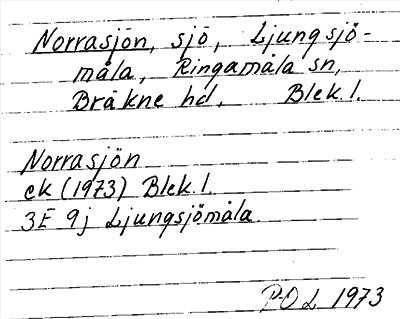 Norrasjön, sjö, Ljungsjö-
måla, Ringamåla sn,
Bräkne hd, Blek. l.
Norrasjön
ek (1973) Blek. l.
3E 9j Ljungsjömåla
P-O L 1973